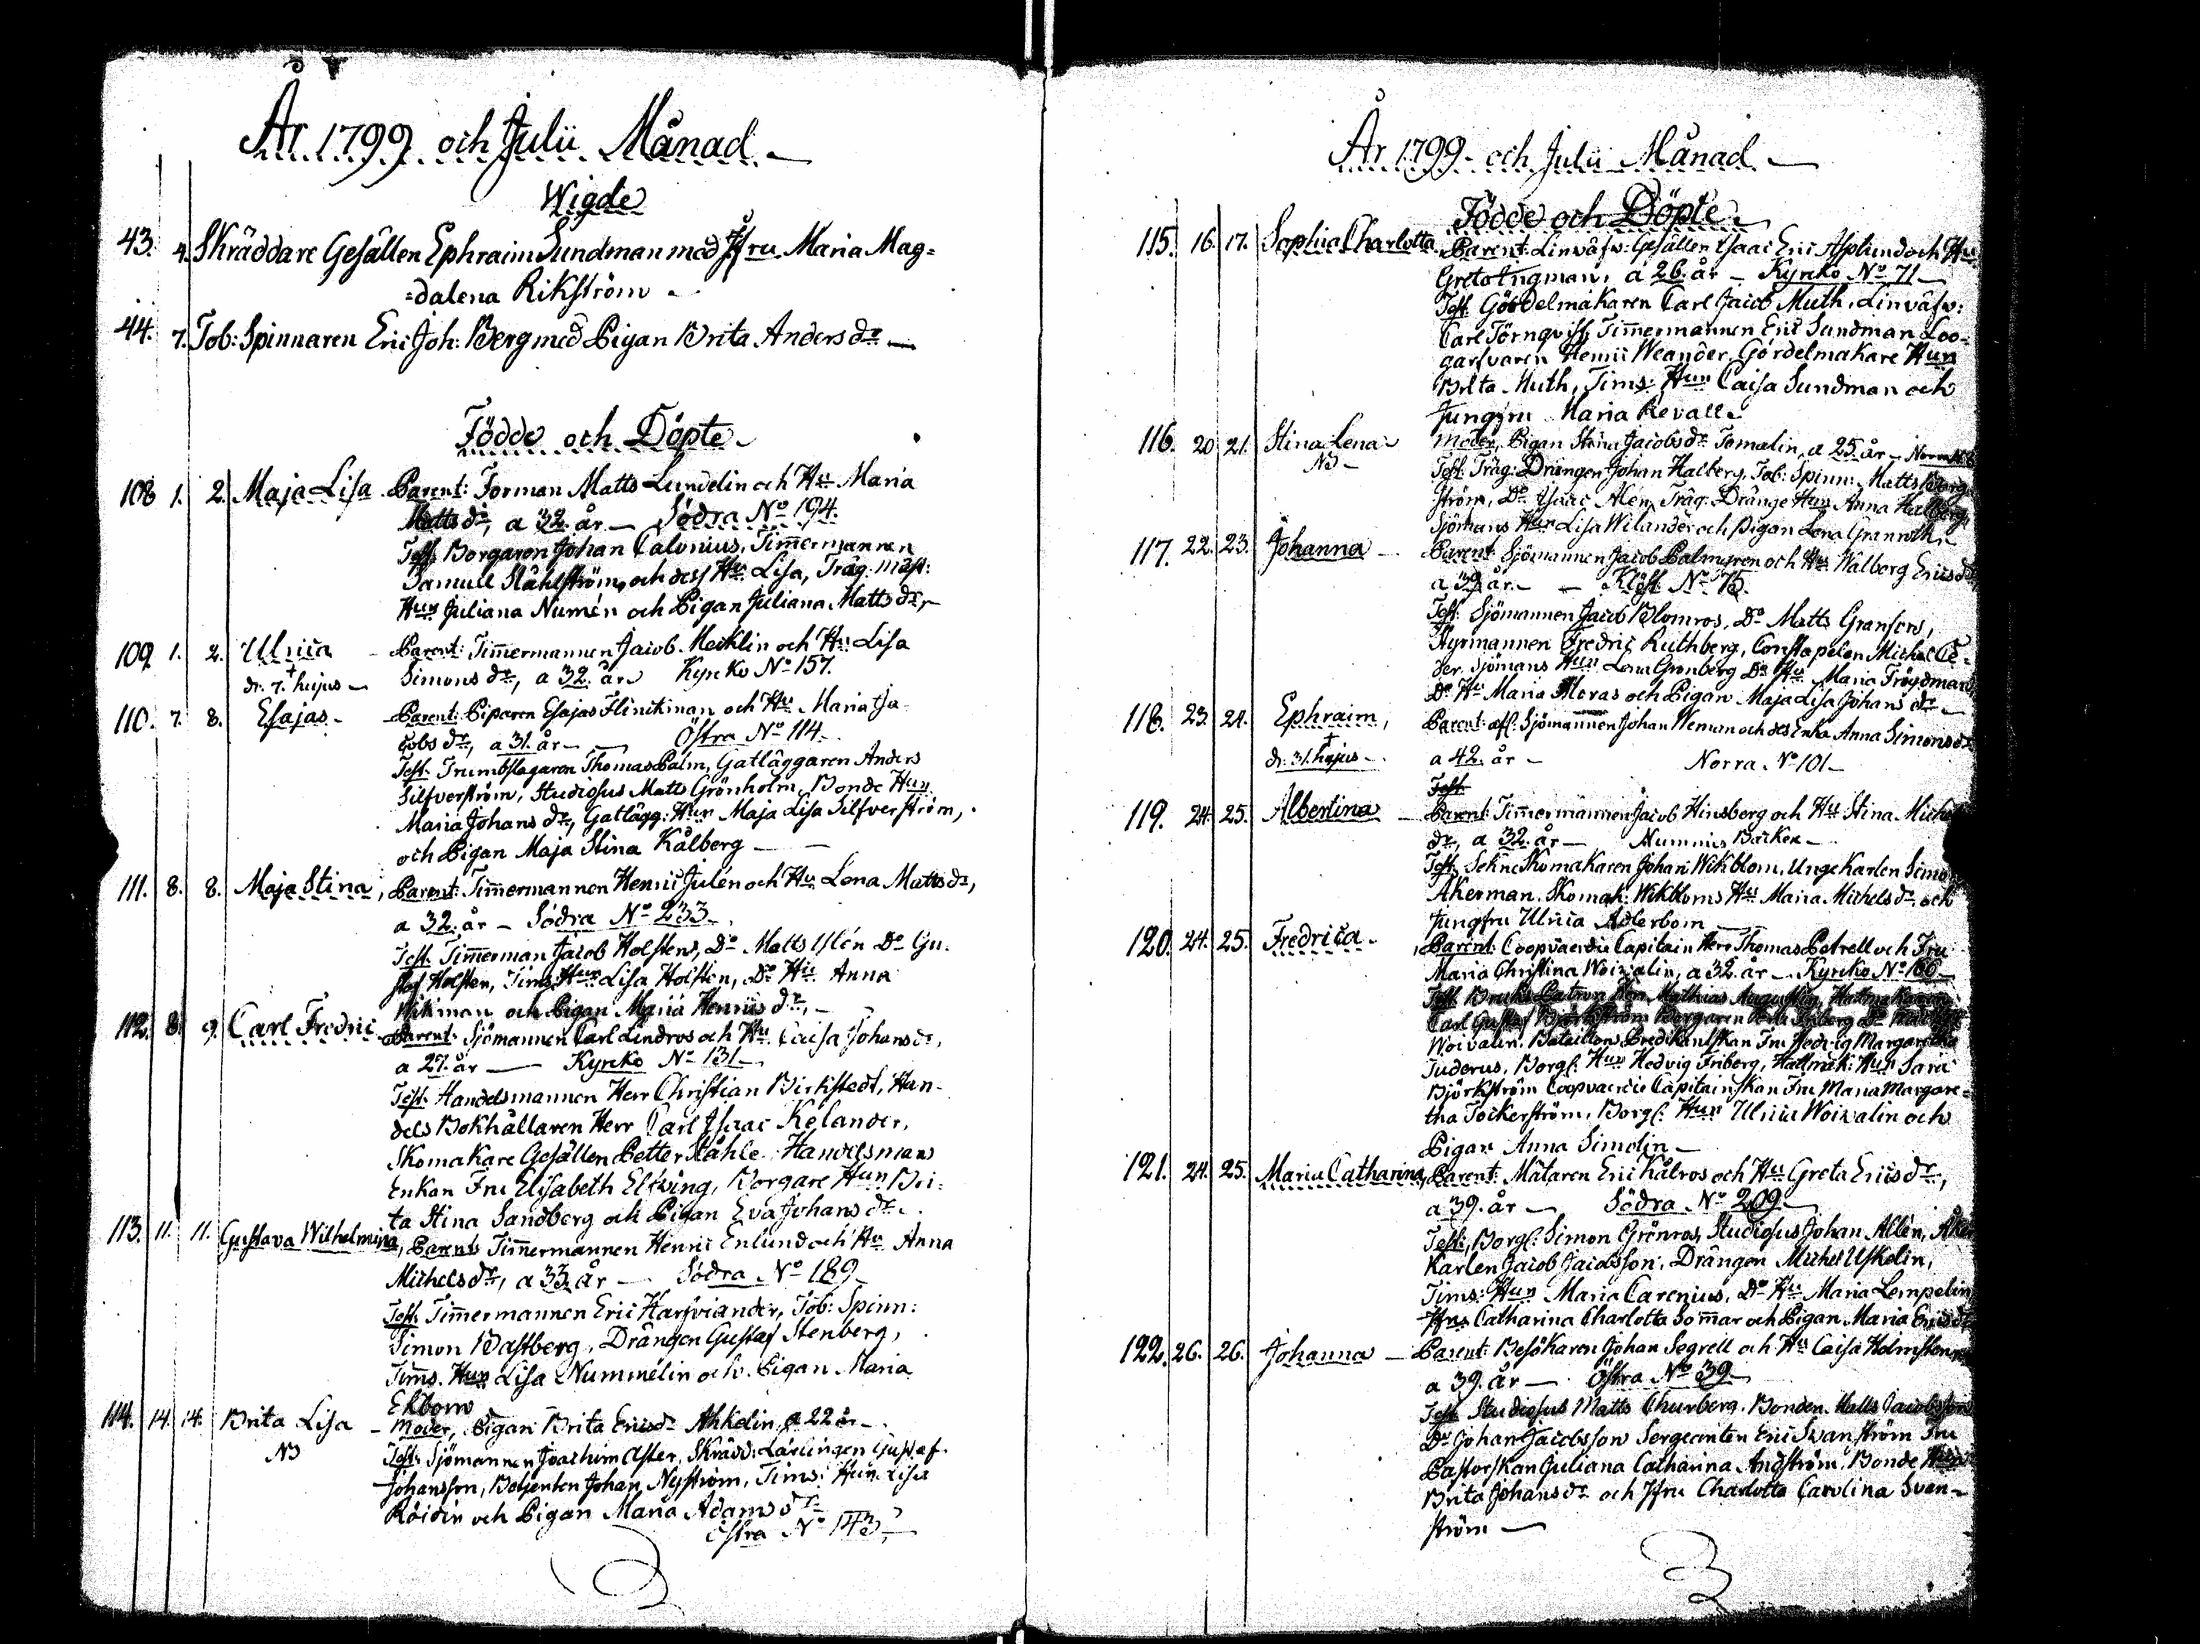 År 1799 och Julii Månad
Wigde
43. 4. Skräddare Gesällen Ephraim Sundman med Jfru Maria Mag=
=dalena Rikström
44. 7. Tob: Spinnaren Eric Joh: Berg med Pigan Brita Anders dr
Födde och Döpte
108 1. 2. Maja Lisa Parent: Forman Matts Lundelin och Hu Maria
Matts dr, a 32 år Södra No 194.
Test. Borgaren Johan Calonius, Timmermannen
Samuel Ståhlström, och dess Hu Lisa, Träg. mäst:
Hun Juliana Numén och Pigan Juliana Matts dr
109 1. 2. Ulrica Parent: Timmermannen Jacob Mecklin och Hu Lisa
dr. 7. hujus Simons dr, a 32. år Kyrko No 157.
110. 7 8. Esajas Parent: Piparen Esajas Flinckman och Hu Maria Ja=
cobs dr, a 31. år Östra No 114.
Test. Trumbslagaren Thomas Palm, Gatläggaren Anders
Silfverström, Studiosus Matts Grönholm, Bonde Hun
Maria Johans dr, Gatlägg: Hun Maja Lisa Silfverström,
och Pigan Maja Stina Kålberg
111. 8. 8. Maja Stina, Parent: Timmermannen Henric Julén och Hu Lena Matts dr,
a 32. år Södra No 233
Test. Timmerman Jacob Holsten, Do Matts Do Gu=
staf Holsten, Tims: Hun Lisa Holsten, Do Hu Anna
Wikman och Pigan Maria Henrics dr,
112. 8. 9. Carl Fredric Parent: Sjömannen Carl Lindros och Hu Caisa Johans dr,
a 27. år Kyrko No 131
Test. Handelsmannen Herr Christian Birkstedt, Han=
dels Bokhållaren Herr Carl Isaac Kelander,
Skomakare Gesällen Petter Ståhle Handelsmans
Enkan Fru Elisabeth Elfving, Borgare Hun Bri=
ta Stina Sandberg och Pigan Eva Johans dr
113. 11. 11. Gustava Wilhelmina, Parent: Timmermannen Henric Enlund och Hu Anna
Michels dr, a 33. år Södra No 189
Test. Timmermannen Eric Harfviander, Tob: Spinn:
Simon Bastberg, Drängen Gustaf Stenberg,
Tims. Hun Lisa Nummelin och Pigan Maria
Ekbom
114. 14. 14. Brita Lisa Moder, Pigan Brita Erics dr Ahkelin, a 22 år
Test: Sjömannen Joachim Aster, Skrädd: Lärlingen Gustaf
Johansson, Betjenten Johan Nyström, Tims: Hun Lisa
och Pigan Maria Adams dr
Östra No 143
År 1799 och Julii Månad
Födde och Döpte
115. 16. 17. Sophia Charlotta Parent: Linväfv: Gesällen Isaac Eric Asplund och Hu
Greta Engman, a 26. år Kyrko No 71
Test Gördelmakaren Carl Jacob Muth, Linväfv:
Carl Törnqvist, Timmermannen Eric Sundman Loo=
garfvaren Henric Weander, Gördelmakare Hun
Brita Muth, Tims: Hun Caisa Sundman och
Jungfru Maria Revall
116. 20 21. Stina Lena Moder, Pigan Stina Jacobs dr Tomalin, a 25. år
Test. Träg: Drängen Johan Halberg, Tob: Spinn: Matts
ström, Do Isaac Alen, Träg: Dränge Hun Anna Halberg
Sjömans Hun Lisa Wilander och Pigan Lena Granroth
117. 22. 23. Johanna Parent: Sjömannen Jacob Palmgren och Hu Walborg Erics dr
a 39. år Klöst No 75.
Test. Sjömannen Jacob Blomros, Do Matts
Styrmannen Fredric Ruthberg, Constapelen Michel Ce=
der. Sjömans Hun Lena Grönberg Do Hu Maria Fröydman,
Do Hu Maria Moras och Pigan Maja Lisa Johans dr
118. 23. 24. Ephraim, Parent: afl: Sjömannen Johan Weman och dess Enka Anna Simons dr
dr. 31. hujus a 42. år Norra. No 101
Test
119. 24. 25. Albertina Parent: Timmermannen Jacob Hinsberg och Hu Stina Michels
dr, a 32. år Nummis Backen
Test. Sokne Skomakaren Johan Wikblom, Unge Karlen Simon
Åkerman, Skomak: Wikbloms Hu Maria Michels dr och
Jungfru Ulrica Adlerbom
120. 24. 25. Fredrica Parent: Coopvaerdie Capitain Herr Thomas Petrell och Fru
Maria Christina Woivalin, a 32. år Kyrko No 166
Test. Bruks Patron Herr Mathias Augustin, Hattmakaren
Carl Gustaf Björkström Borgaren
Woivalin, Bataillons Predikantskan Fru Hedvig Margaretha
Juderus, Borgl: Hun Hedvig Friberg, Hattmak: Hun Sara
Björkström Coopvaerdie Capitainskan Fru Maria Margare=
tha Tockerström, Borgl: Hun Ulrica Woivalin och
Pigan Anna Simolin
121. 24. 25. Maria Catharina, Parent: Mätaren Eric Kålros och Hu Greta Erics dr,
a 39. år Södra No 209
Test, Borgl: Simon Grönros, Studiosus Johan Allén,
Karlen Jacob Jacobsson, Drängen Michel Uskelin,
Tims: Hun Maria Carenius, Do Hu Maria Lempelin
Jfru Catharina Charlotta Sommar och Pigan Maria Erics dr
122. 26. 26. Johanna Parent: Besökaren Johan Segrell och Hu Caisa Holmsten
a 39. år Östra No 39
Test Studiosus Matts Churberg, Bonden Matts Jacobsson
Do Johan Jacobsson Sergeanten Eric Svanström Fru
Pastorskan Juliana Catharina Andström, Bonde Hun
Brita Johans dr och Jfru Charlotta Carolina Svan=
ström